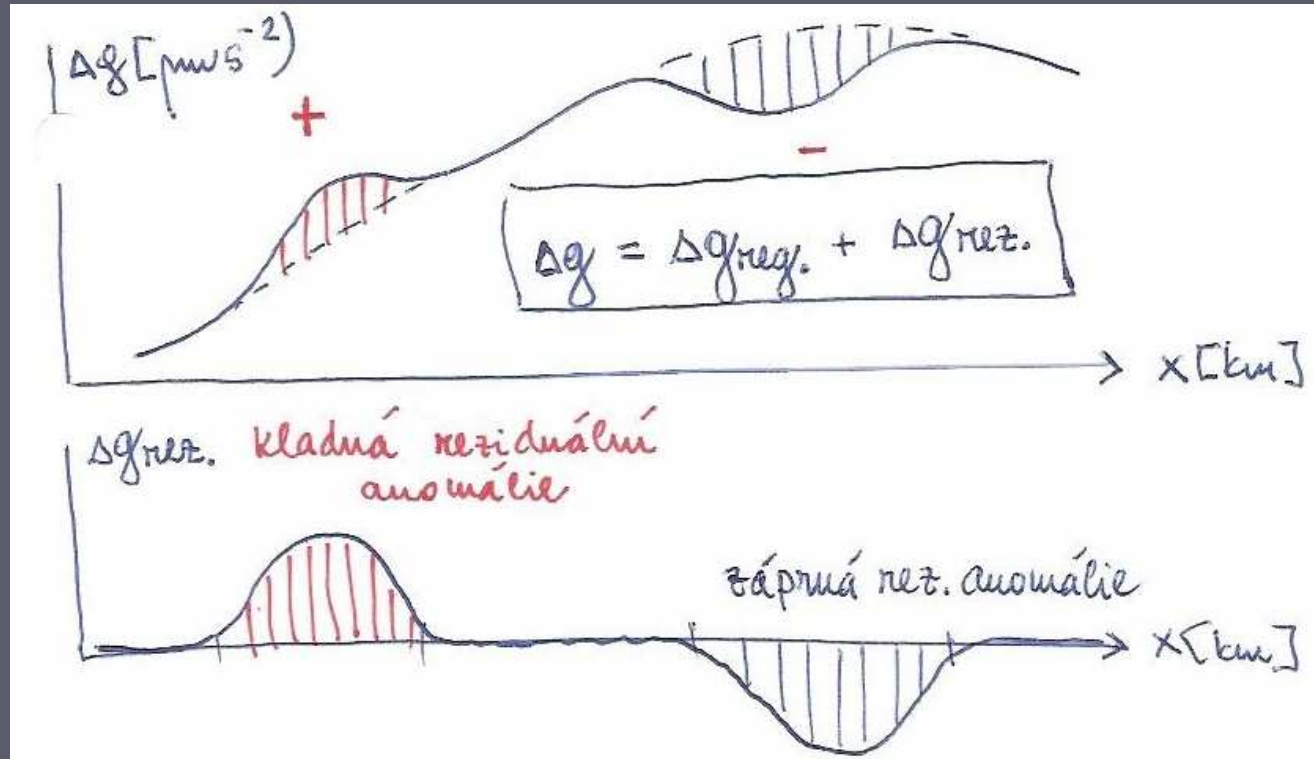 Δg [μm s⁻²)
+
-
Δg = Δg reg. + Δg rez.
x [km]
Δg rez. kladná reziduální
anomálie
záprná rez. anomálie
x [km]